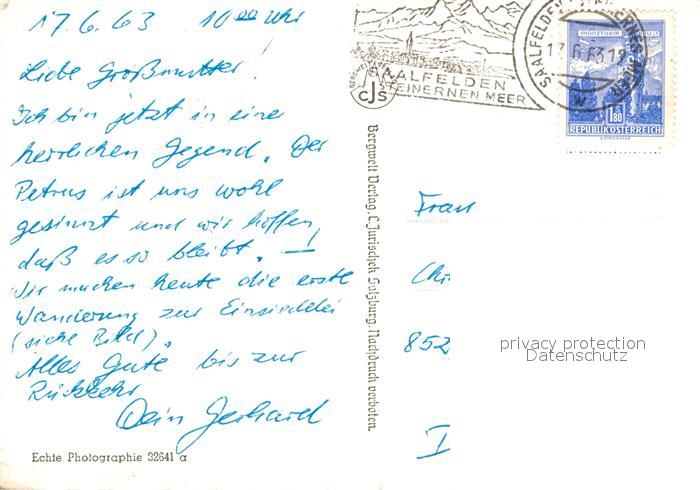 17.6.63 10⁰⁰ Uhr
Liebe Großmutter!
Ich bin jetzt in einer
herrlichen Gegend. Der
Petrus ist uns wohl
gesinnt und wir hoffen,
daß es so bleibt. —
Wir machen heute die erste
Wanderung zur Einsiedelei
(siehe Bild).
Alles Gute bis zur
Rückkehr
Dein Gerhard
Echte Photographie 32641 a
Bergwelt Verlag, C. Jurischek Salzburg. Nachdruck verboten.
CJS
SAALFELDEN
STEINERNEN MEER
SAALFELDEN
17.6.63
w
MÜNZTURM
S 1.80
REPUBLIK ÖSTERREICH
Frau
Chr.
852
I
privacy protection
Datenschutz